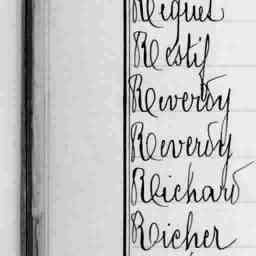 Riquet
Restif
Reverdy
Reverdy
Richard
Richer